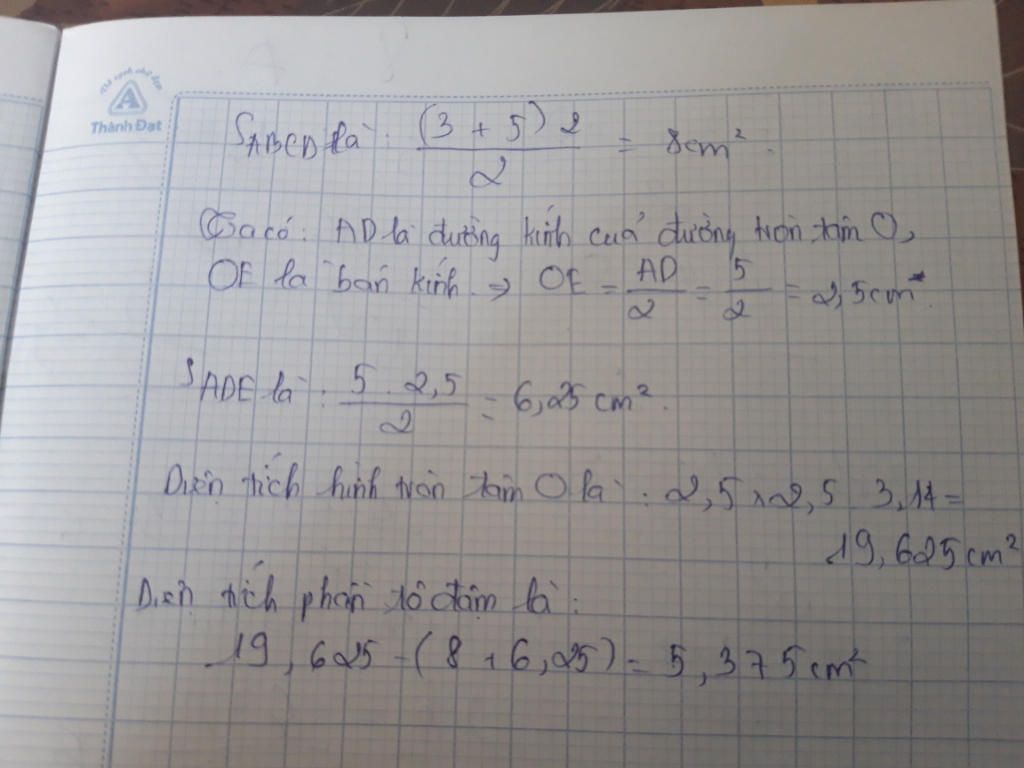 Thành Đạt
S_ABCD là: \frac{(3 + 5) 2}{2} = 8cm².
Ta có: AD là đường kính của đường tròn tâm O,
OE là bán kính → OE = \frac{AD}{2} = \frac{5}{2} = 2,5cm.
S_ADE là: \frac{5 . 2,5}{2} = 6,25 cm².
Diện tích hình tròn tâm O là: 2,5 x 2,5 3,14 =
19,625 cm²
Diện tích phần tô đậm là:
19,625 - (8 + 6,25) = 5,375 cm²